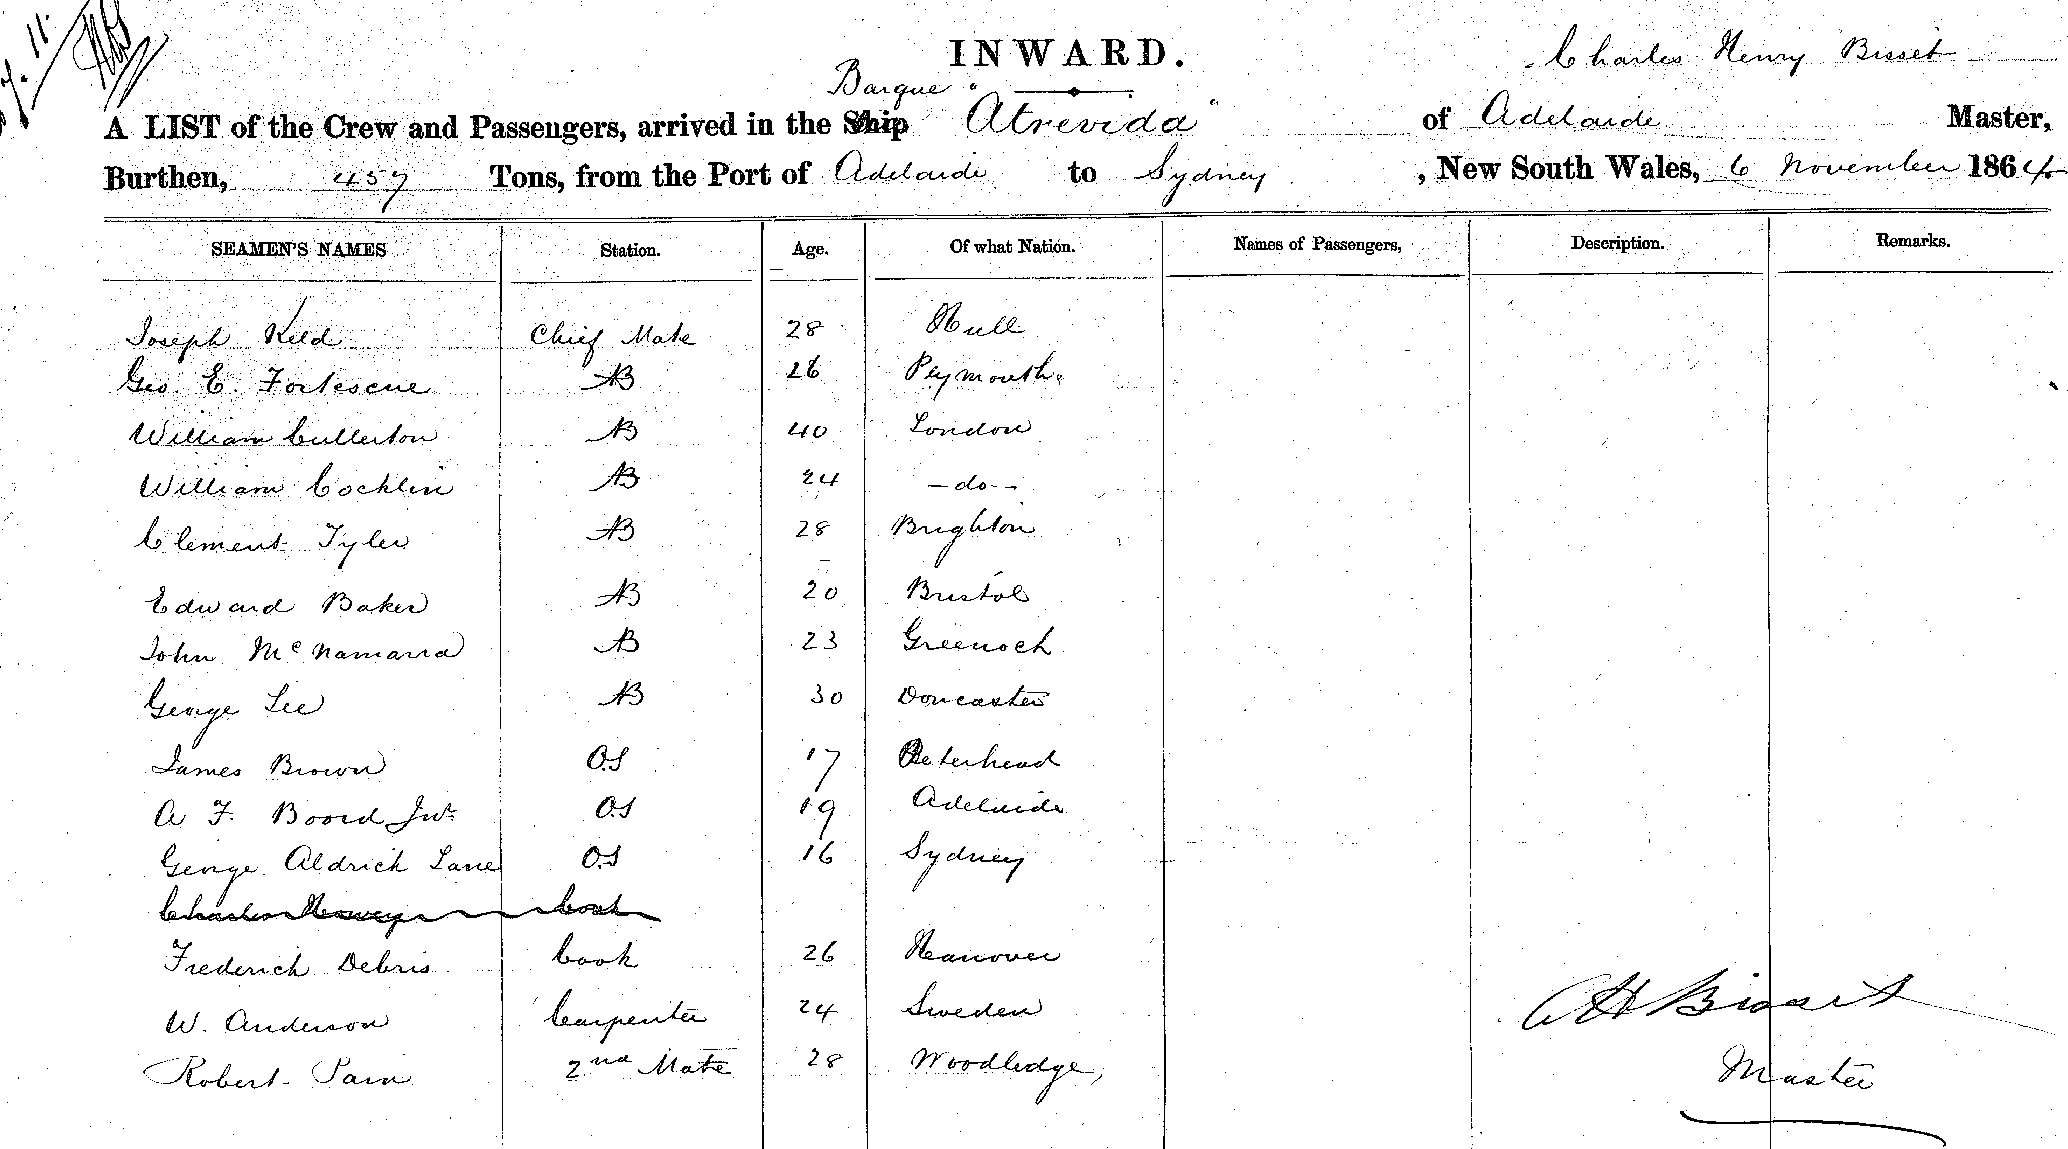 INWARD.
Charles Henry Bisset
Barque
A LIST of the Crew and Passengers, arrived in the Ship "Atrevida" of Adelaide Master,
Burthen, 457 Tons, from the Port of Adelaide to Sydney, New South Wales, 6 November 1864
SEAMEN'S NAMES Station. Age. Of what Nation. Names of Passengers, Description. Remarks.
Joseph Keld Chief Mate 28 Hull
Geo. E. Fortescue AB 26 Plymouth
William Cullerton AB 40 London
William Cocklin AB 24 -do-
Clement Tyler AB 28 Brighton
Edward Baker AB 20 Bristol
John McNamarra AB 23 Greenock
George Lee AB 30 Doncaster
James Brown OS 17 Peterhead
A F. Boord Jnr OS 19 Adelaide
George Aldrich Lane OS 16 Sydney
Charles Cook
Frederich Debris Cook 26 Hanover
W. Anderson Carpenter 24 Sweden
Robert Pain 2nd Mate 28 Woodledge,
CH Bisset
Master